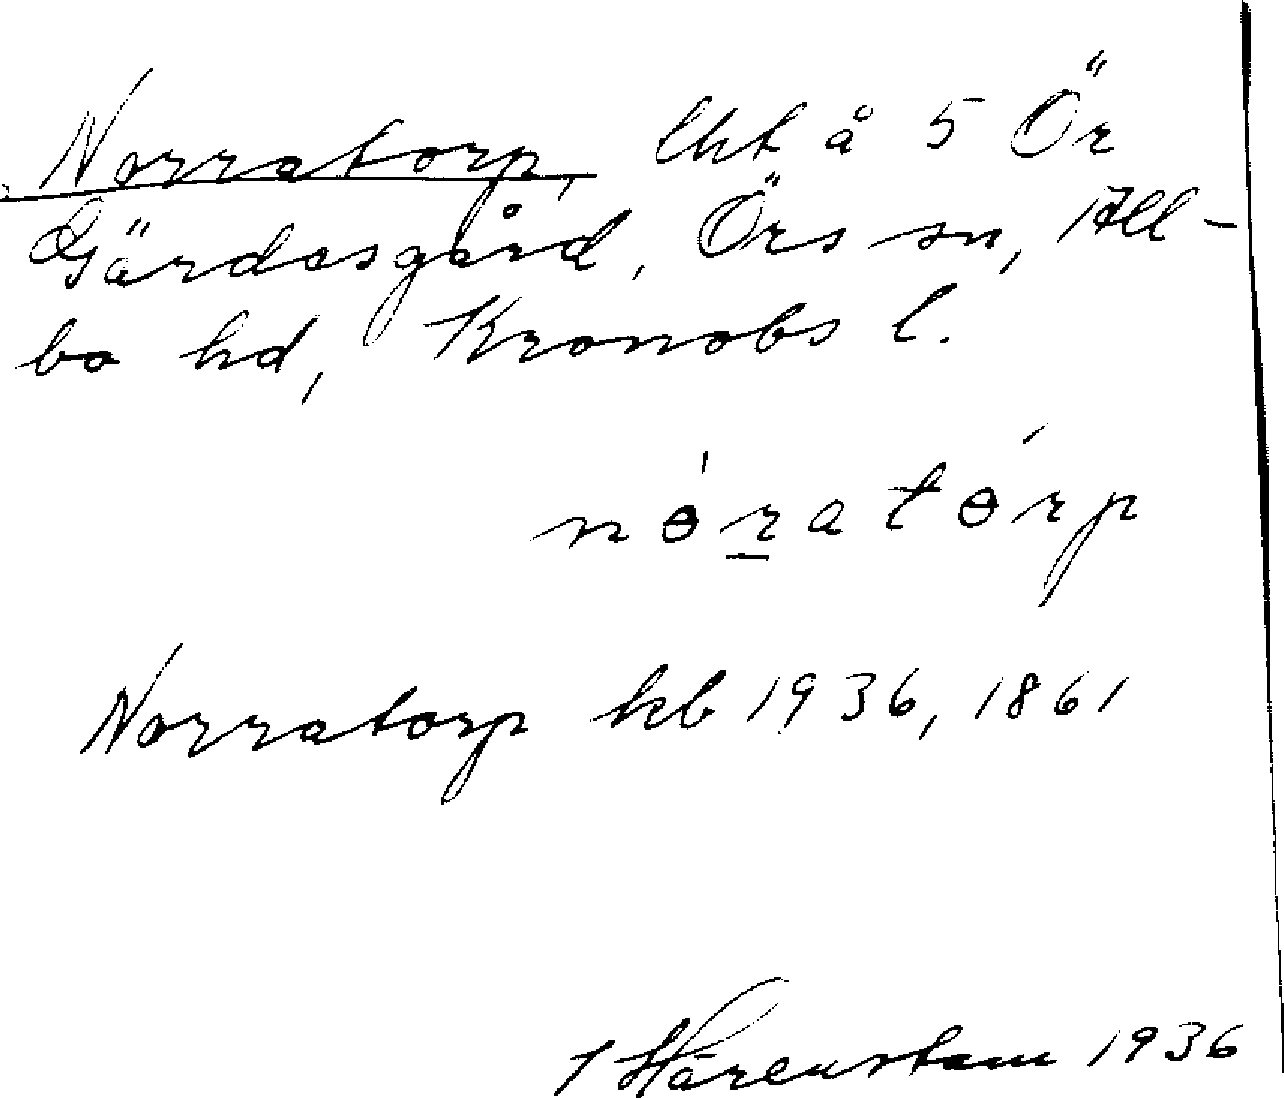 Norratorp, lht å 5 Ör
Gärdasgård, Örs sn, All-
bo hd, Kronobs l.
nɵ́ratɵ́rp
Norratorp kb 1936, 1861
Hårenstam 1936